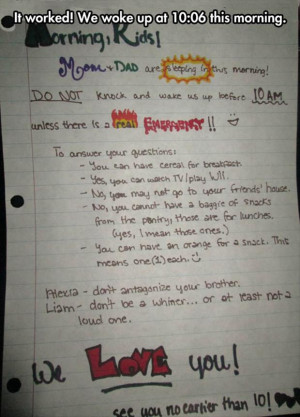 It worked! We woke up at 10:06 this morning.
Morning, Kids!
Mom + DAD are sleeping in this morning!
DO NOT knock and wake us up before 10 AM
unless there is a real EMERGENCY!!
To answer your questions:
- You can have cereal for breakfast
- Yes, you can watch TV/play Wii.
- No, you may not go to your friends' house.
- No, you cannot have a baggie of snacks
from the pantry, those are for lunches.
(yes, I mean those ones.)
- You can have an orange for a snack. This
means one (1) each.
Alexia - don't antagonize your brother.
Liam - don't be a whiner... or at least not a
loud one.
We LOVE you!
see you no earlier than 10!